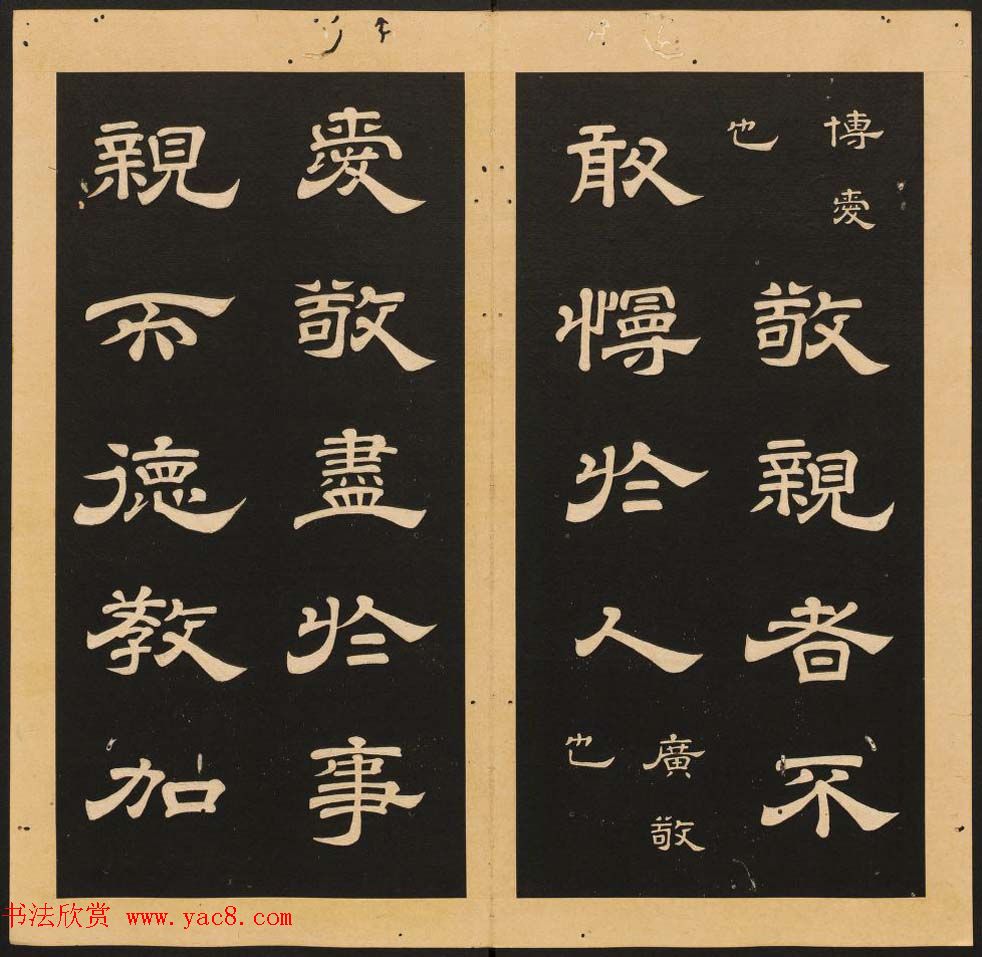 博愛也敬親者不
敢慢於人廣敬也
愛敬盡於事
親而德教加
书法欣赏 www.yac8.com